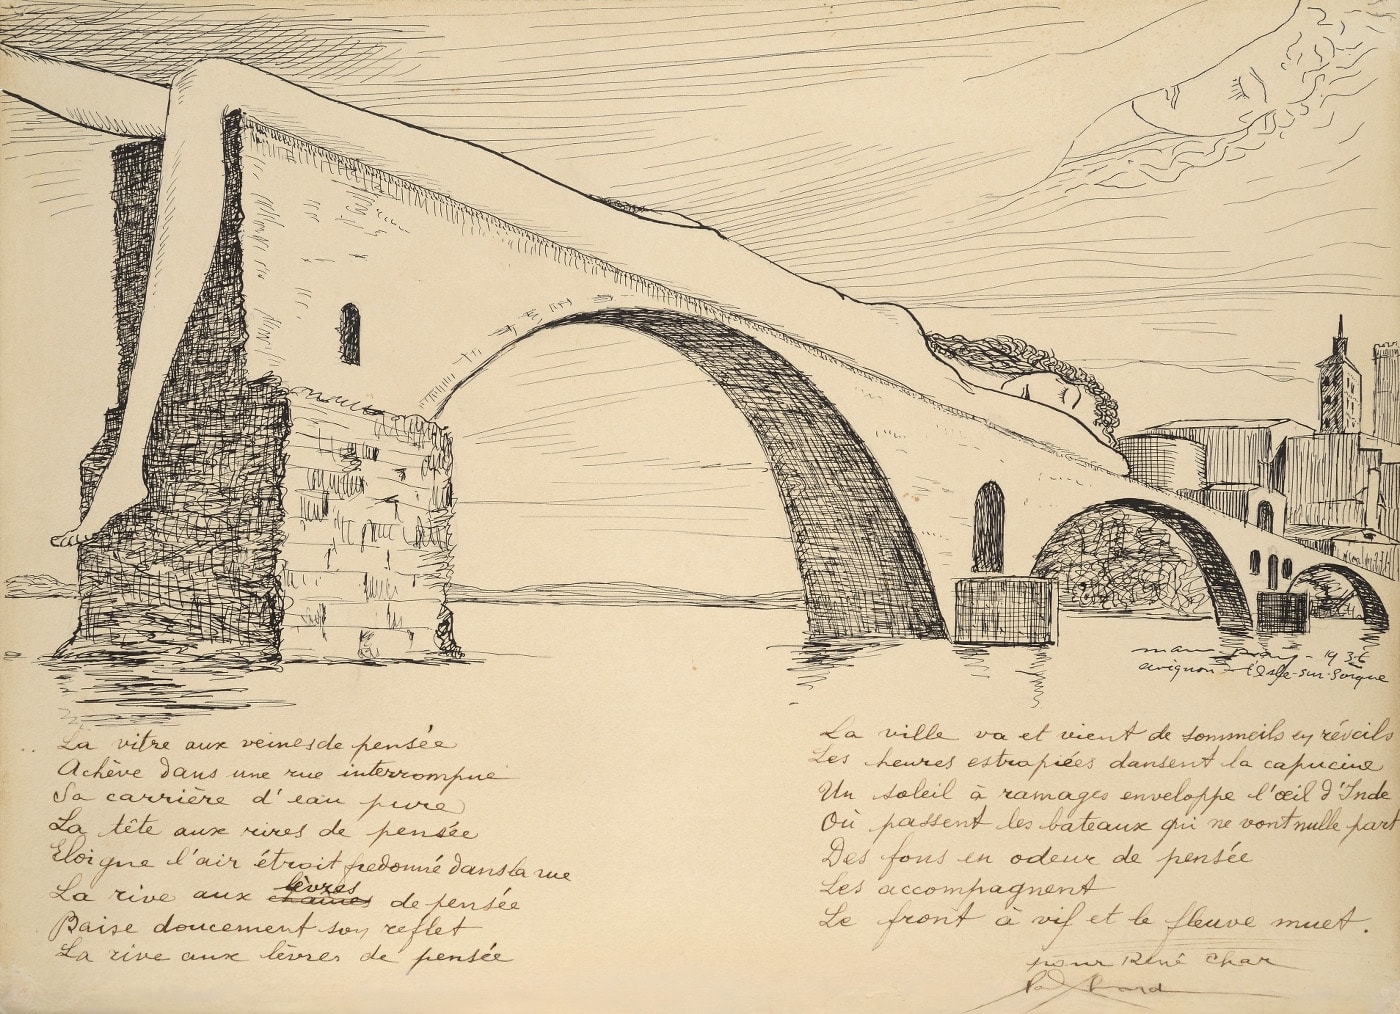 man ray - 1936
avignon - l'Isle-sur-Sorgue
La vitre aux veines de pensée
Achève dans une rue interrompue
Sa carrière d'eau pure
La tête aux rires de pensée
Eloigne l'air étroit fredonné dans la rue
lèvres
La rive aux chaines de pensée
Baise doucement son reflet
La rive aux lèvres de pensée
La ville va et vient de sommeils en réveils
Les heures estropiées dansent la capucine
Un soleil à ramages enveloppe l'œil d'Inde
Où passent les bateaux qui ne vont nulle part
Des fous en odeur de pensée
Les accompagnent
Le front à vif et le fleuve muet.
pour René Char